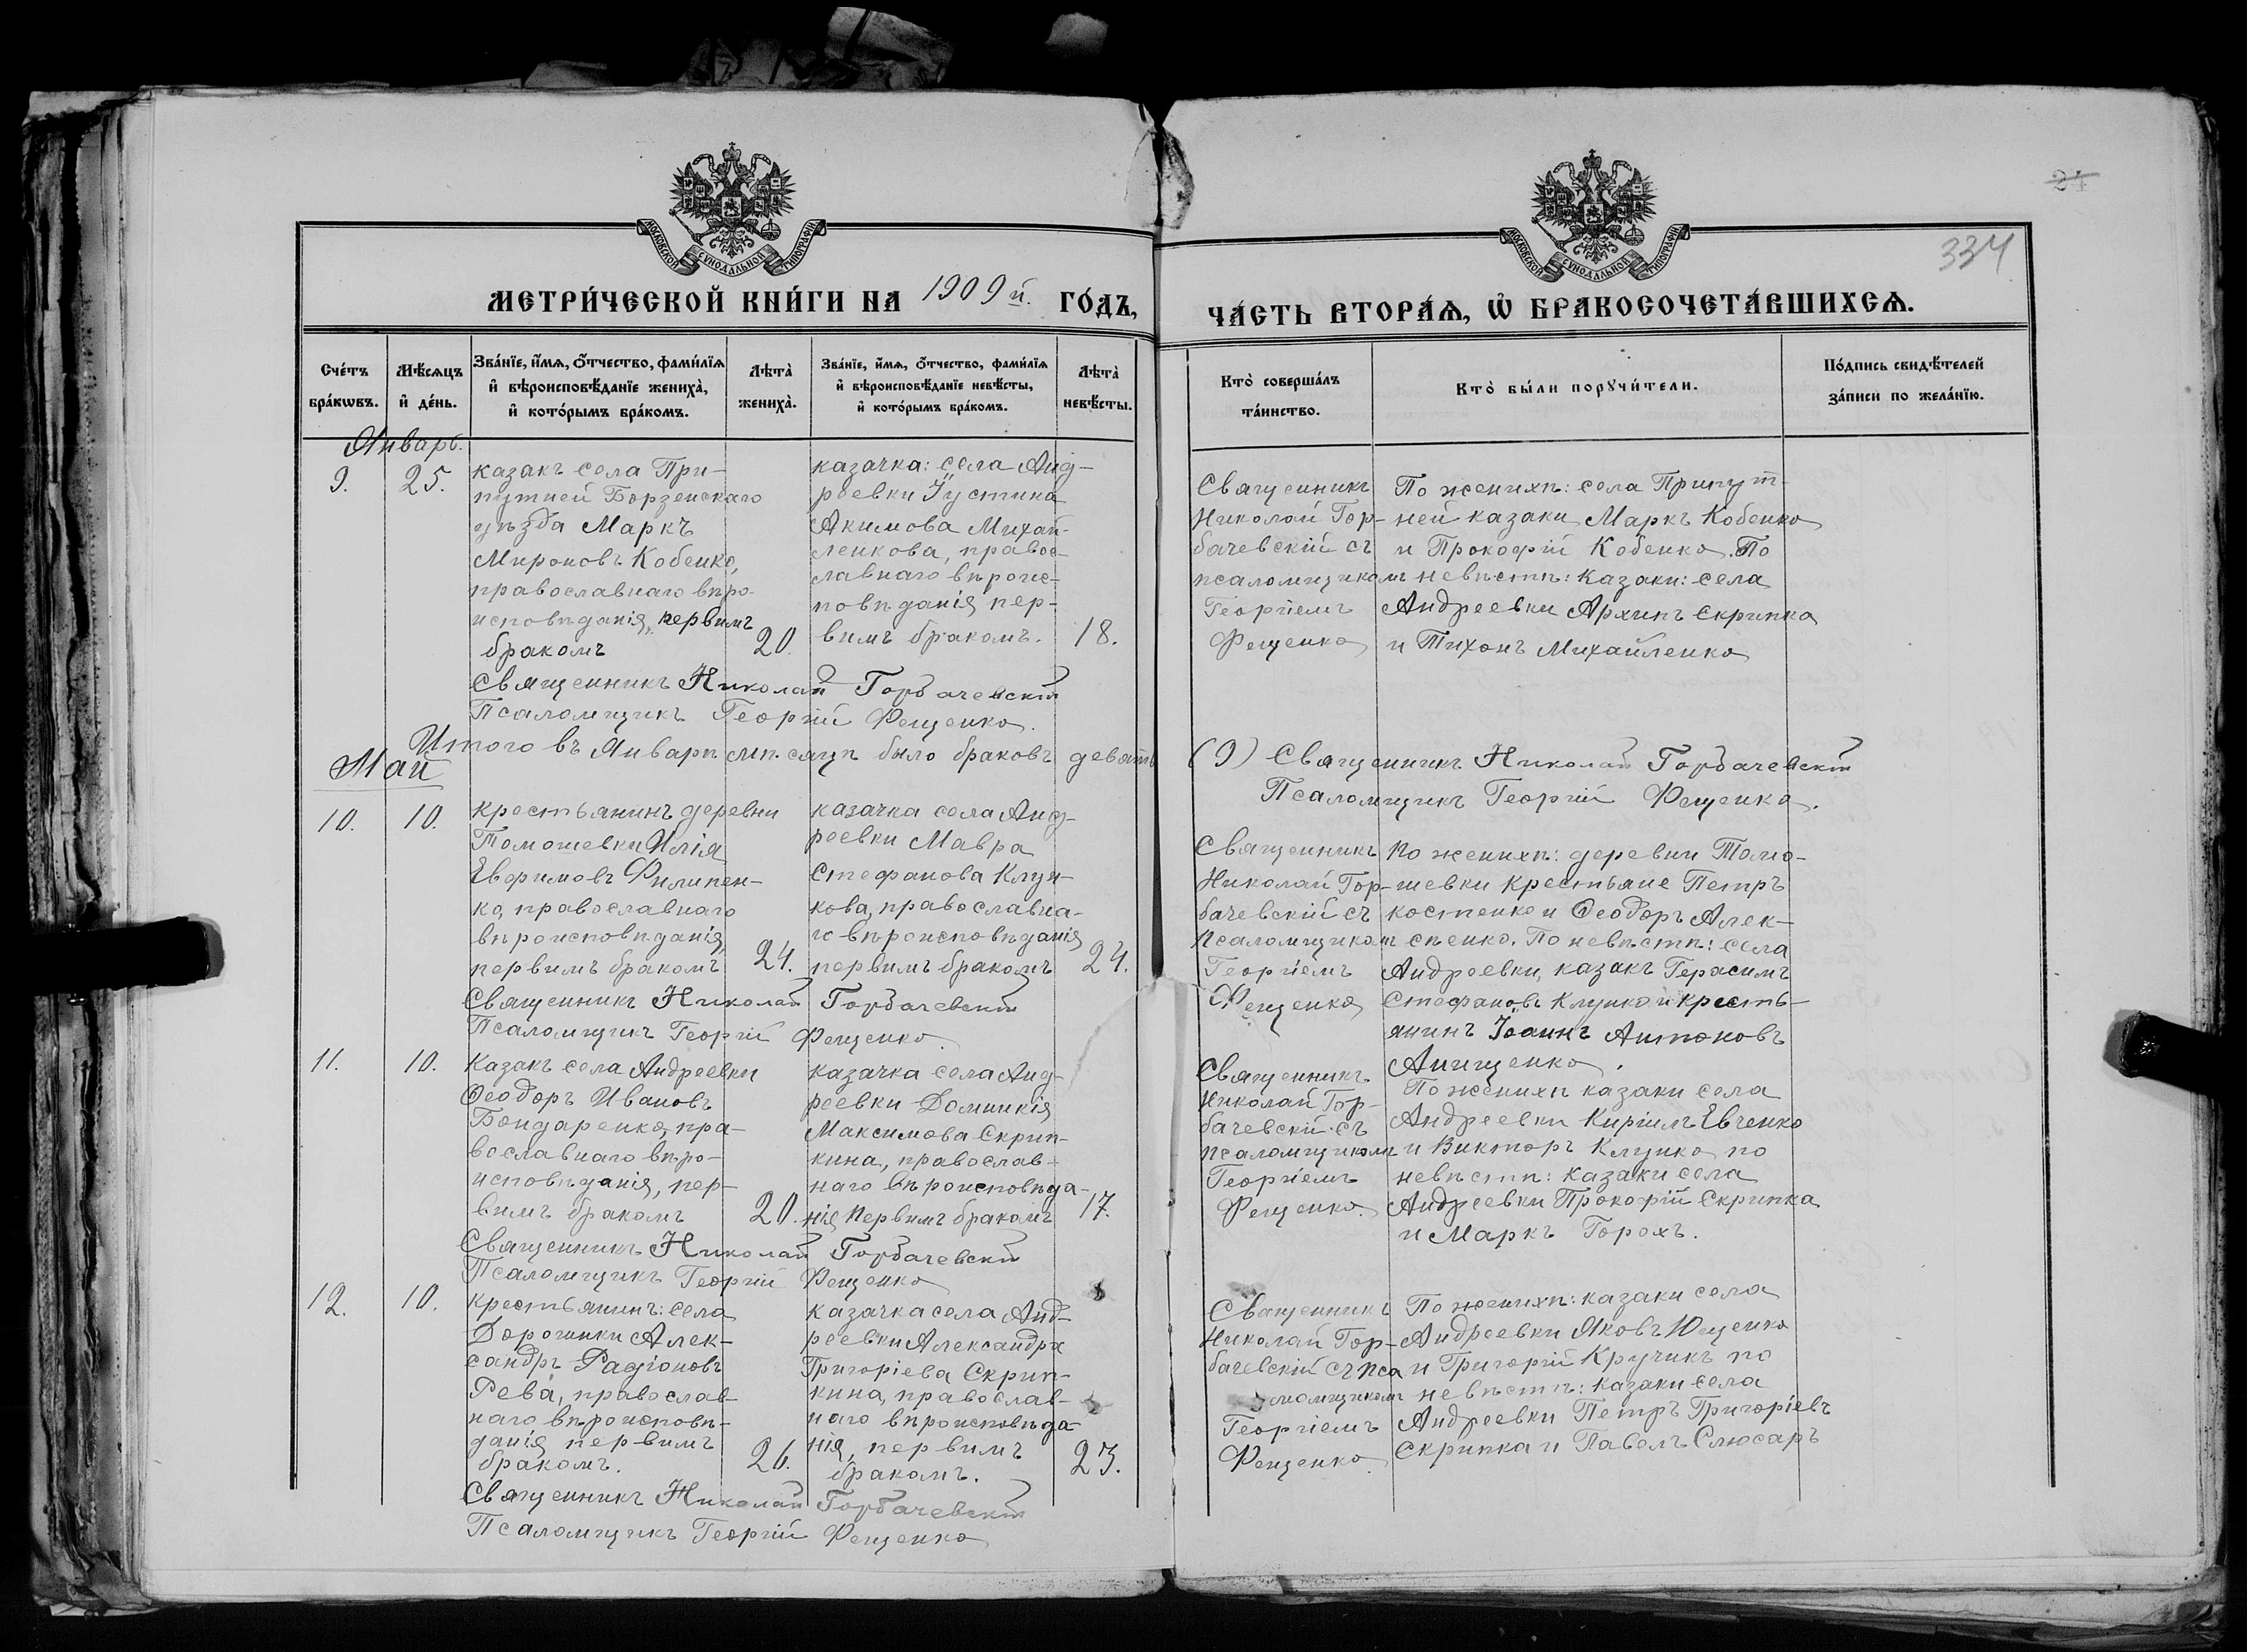 24
334
МОСКОВСКОЙ СѴНОДАЛЬНОЙ ТИПОГРАФІИ
МОСКОВСКОЙ СѴНОДАЛЬНОЙ ТИПОГРАФІИ
МЕТРИ́ЧЕСКОЙ КНИ́ГИ НА 1909й. ГО́ДЪ,
ЧА́СТЬ ВТОРА́Ѧ, Ѡ҆ БРАКОСОЧЕТА́ВШИХСѦ.
Сче́тъ
бра́кѡвъ.
Мѣ́сѧцъ
и҆ де́нь.
Зва́нїе, и҆́мѧ, ѻ҆́тчество, фами́лїѧ
и҆ вѣроисповѣ́данїе жениха̀,
и҆ кото́рымъ бра́комъ.
Лѣта̀
жениха̀.
Зва́нїе, и҆́мѧ, ѻ҆́тчество, фами́лїѧ
и҆ вѣроисповѣ́данїе невѣ́сты,
и҆ кото́рымъ бра́комъ.
Лѣта̀
невѣ́сты.
Кто̀ соверша́лъ
та́инство.
Кто̀ бы́ли порꙋчи́тели.
По́дпись свидѣ́телей
за́писи по жела́нїю.
Январь.
9.
25.
казакъ села При-
путней Борзенскаго
уѣзда Маркъ
Мироновъ Кобенко,
православнаго вѣро-
исповѣданія, первимъ
бракомъ
20.
казачка: села Анд-
реевки Іустина
Акимова Михай-
ленкова, право-
славнаго вѣроис-
повѣданія пер-
вимъ бракомъ.
18.
Священникъ
Николай Гор-
бачевскій съ
псаломщикомъ
Георгіемъ
Фещенко
По женихѣ: села Припут-
ней казаки Маркъ Кобенко
и Прокофій Кобенко. По
невѣстѣ: казаки: села
Андреевки Архипъ Скрипка
и Тихонъ Михайленко
Священникъ Николай Горбачевскій
Псаломщикъ Георгій Фещенко.
Итого въ Январѣ мѣсяцѣ было браковъ девять (9) Священникъ Николай Горбачевскій
Псаломщикъ Георгій Фещенко.
Май
10.
10.
крестьянинъ деревни
Томошевки Илія
Евфимовъ Филипен-
ко, православнаго
вѣроисповѣданія,
первимъ бракомъ
24.
казачка села Анд-
реевки Мавра
Стефанова Клун-
кова, православна-
го вѣроисповѣданія
первимъ бракомъ
24.
Священникъ
Николай Гор-
бачевскій съ
псаломщикомъ
Георгіемъ
Фещенко
По женихѣ: деревни Томо-
шевки крестьяне Петръ
костенко и Ѳеодоръ Алек-
сѣенко. По невѣстѣ: села
Андреевки, казакъ Герасимъ
Стефановъ Клунко и кресть-
янинъ Іоаннъ Антоновъ
Анищенко.
Священникъ Николай Горбачевскій
Псаломщикъ Георгій Фещенко.
11.
10.
Казакъ села Андреевки
Ѳеодоръ Ивановъ
Бондаренко, пра-
вославнаго вѣро-
исповѣданія, пер-
вимъ бракомъ
20.
казачка села Анд-
реевки Домникія
Максимова Скрип-
кина, православ-
наго вѣроисповѣда-
нія первимъ бракомъ
17.
Священникъ
Николай Гор-
бачевскій съ
псаломщикомъ
Георгіемъ
Фещенко.
По женихѣ казаки села
Андреевки Кирилъ Евченко
и Викторъ Клунко по
невѣстѣ: казаки села
Андреевки Прокофій Скрипка
и Маркъ Горохъ.
Священникъ Николай Горбачевскій
Псаломщикъ Георгій Фещенко
12.
10.
крестьянинъ: села
Дорогинки Алек-
сандръ Радіоновъ
Рева, православ-
наго вѣроисповѣ-
данія первимъ
бракомъ.
26.
казачка села Анд-
реевки Александра
Григоріева Скрип-
кина, православ-
наго вѣроисповѣда-
нія, первимъ
бракомъ.
23.
Священникъ
Николай Гор-
бачевскій съ пса
ломщикомъ
Георгіемъ
Фещенко.
По женихѣ: казаки села
Андреевки Яковъ Ющенко
и Григорій Кручикъ по
невѣстѣ: казаки села
Андреевки Петръ Григоріевъ
Скрипка и Павелъ Слюсаръ
Священникъ Николай Горбачевскій
Псаломщикъ Георгій Фещенко